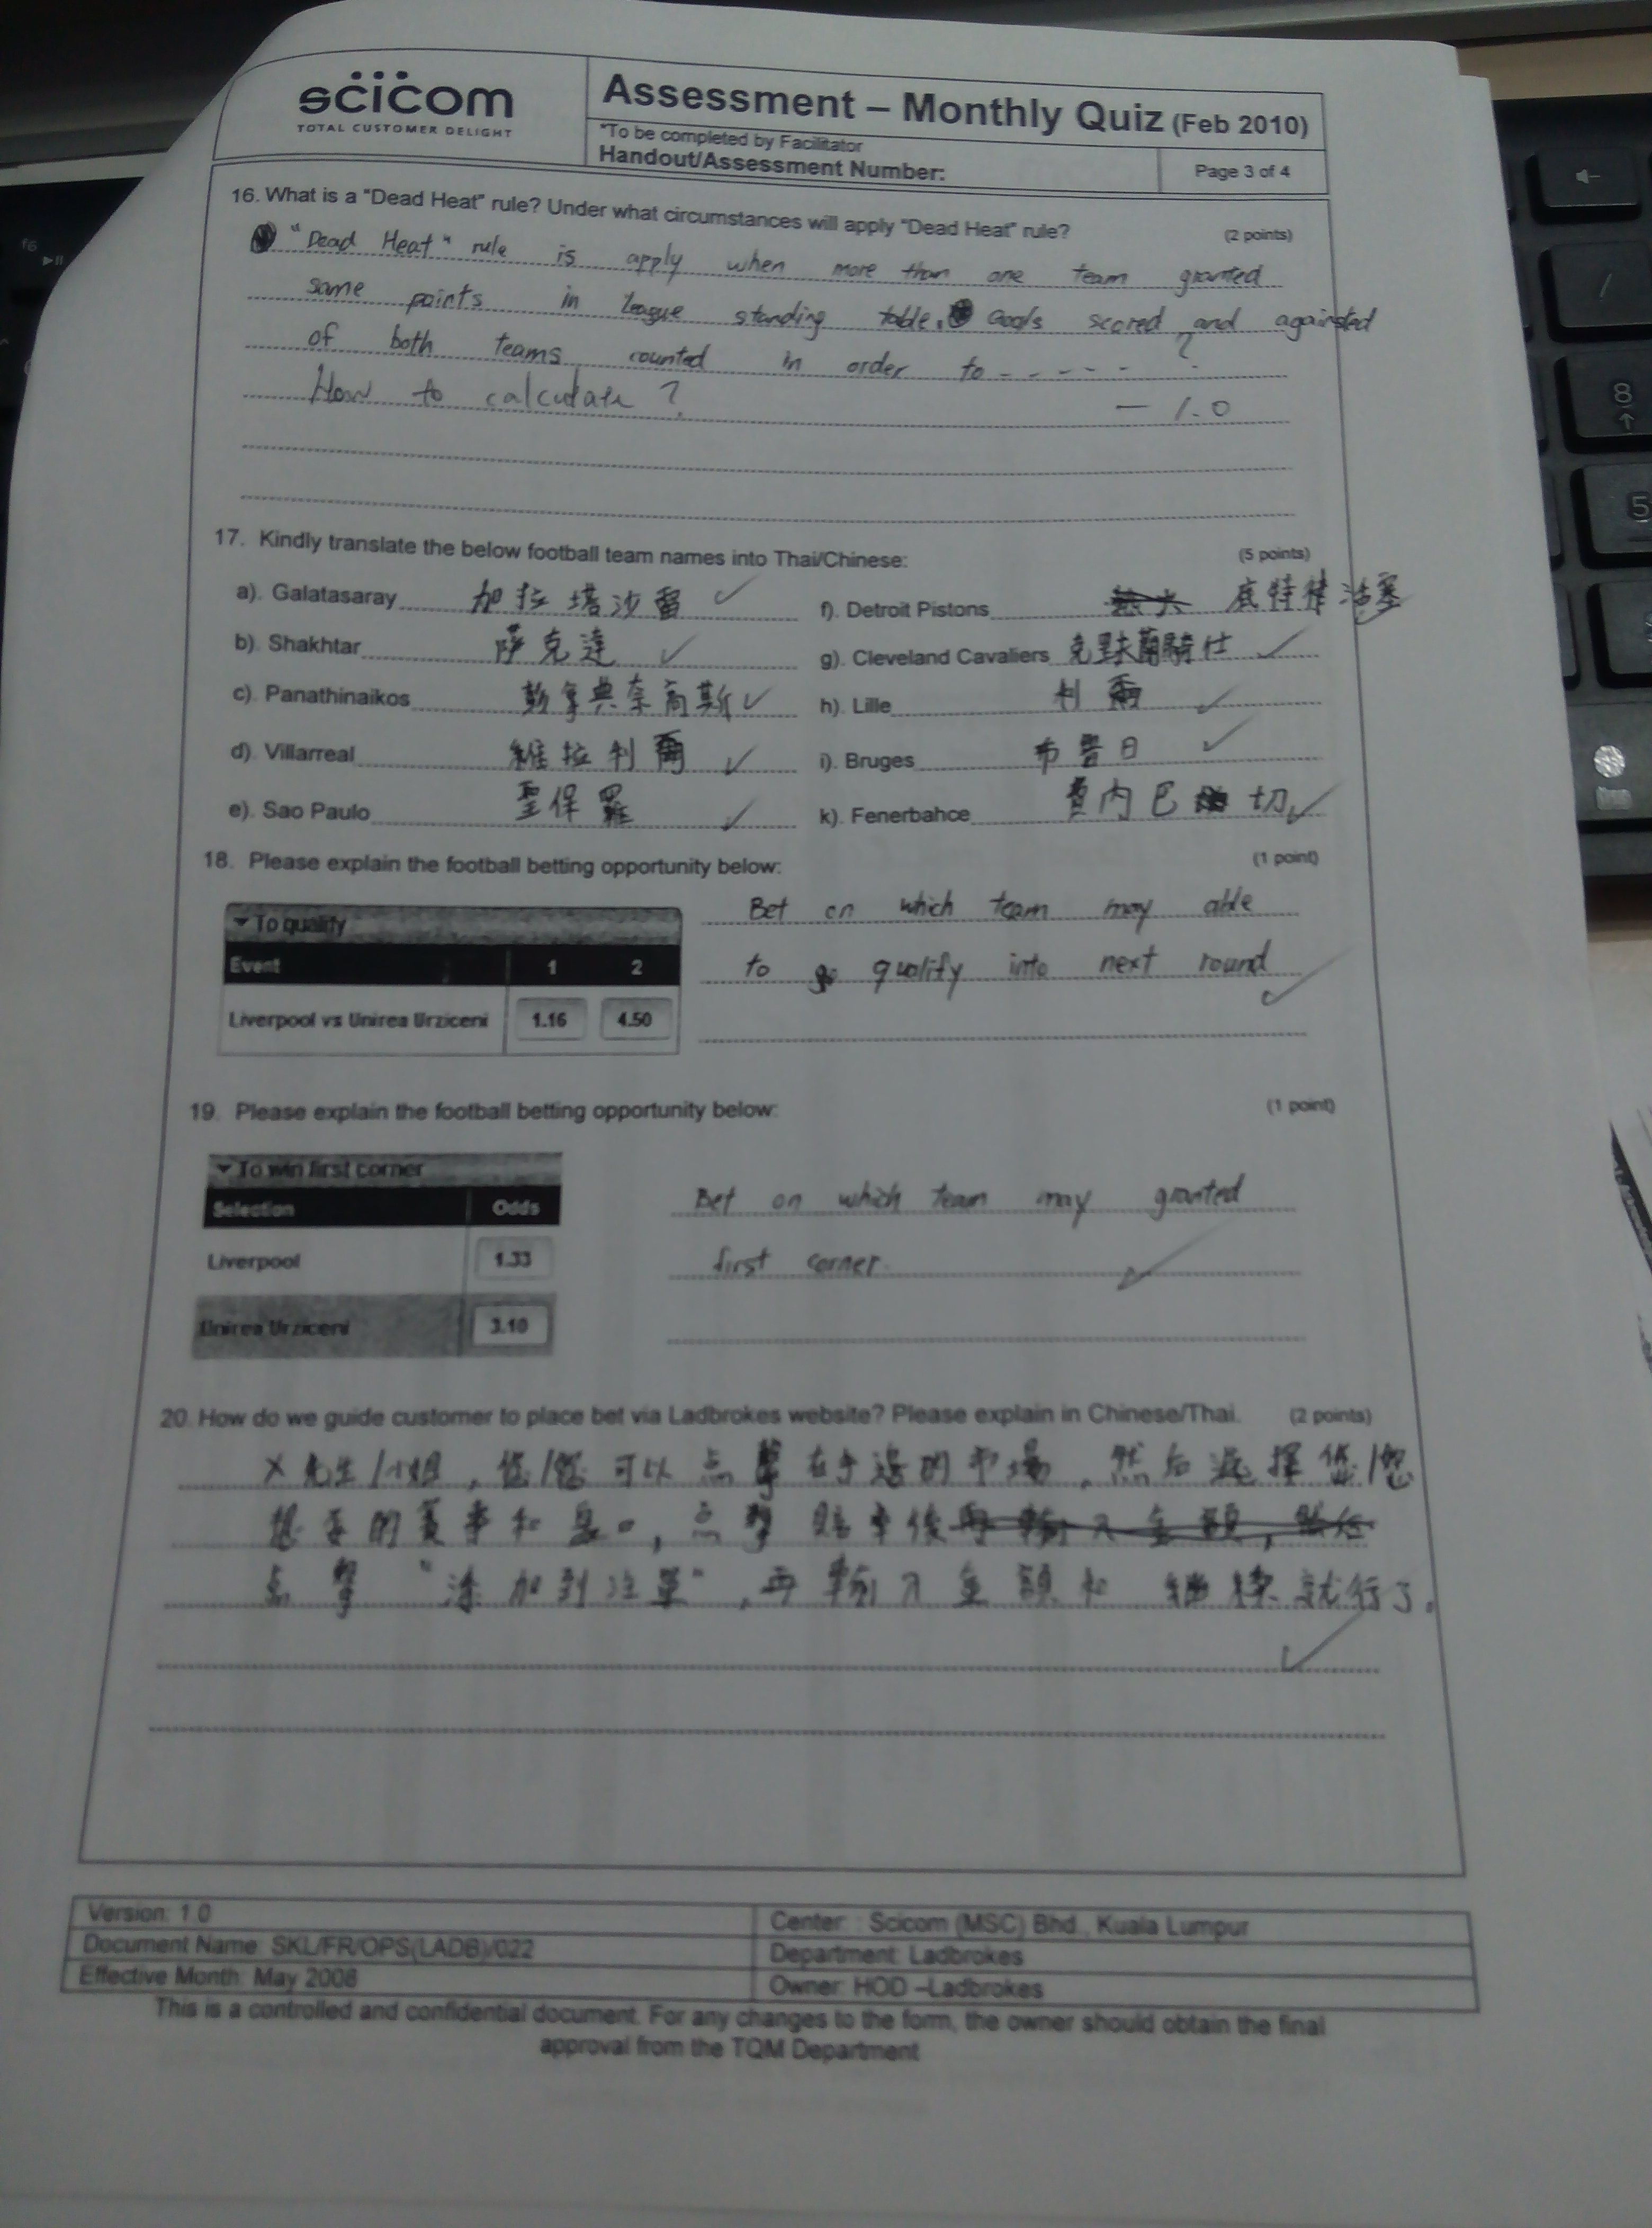 scicom
TOTAL CUSTOMER DELIGHT
Assessment – Monthly Quiz (Feb 2010)
*To be completed by Facilitator
Handout/Assessment Number:
Page 3 of 4
16. What is a "Dead Heat" rule? Under what circumstances will apply "Dead Heat" rule? (2 points)
"Dead Heat" rule is apply when more than one team granted
same points in league standing table. Goals scored and againsted
of both teams counted in order to - - - - - ?
How to calculate? — 1.0
17. Kindly translate the below football team names into Thai/Chinese: (5 points)
a). Galatasaray 加拉塔沙雷 ✓
f). Detroit Pistons 底特律活塞
b). Shakhtar 薩克達 ✓
g). Cleveland Cavaliers 克里夫蘭騎仕 ✓
c). Panathinaikos 彭拿典奈高斯 ✓
h). Lille 利爾 ✓
d). Villarreal 維拉利爾 ✓
i). Bruges 布魯日 ✓
e). Sao Paulo 聖保羅 ✓
k). Fenerbahce 費内巴切 ✓
18. Please explain the football betting opportunity below: (1 point)
To qualify
Event 1 2
Liverpool vs Unirea Urziceni 1.16 4.50
Bet on which team may able
to qualify into next round ✓
19. Please explain the football betting opportunity below: (1 point)
To win first corner
Selection Odds
Liverpool 1.33
Unirea Urziceni 3.10
Bet on which team may granted
first corner. ✓
20. How do we guide customer to place bet via Ladbrokes website? Please explain in Chinese/Thai. (2 points)
X先生/小姐, 您/您可以点擊在手邊的市場, 然后选择您/您
想要的賽事和盘口, 点擊賠率後
点擊"添加到注單", 再輸入金額和继续就行了。
✓
Version: 1.0
Center: : Scicom (MSC) Bhd., Kuala Lumpur
Document Name: SKL/FR/OPS(LADB)/022
Department: Ladbrokes
Effective Month: May 2008
Owner: HOD –Ladbrokes
This is a controlled and confidential document. For any changes to the form, the owner should obtain the final
approval from the TQM Department